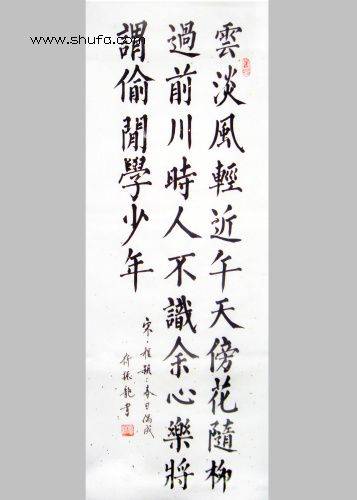 www.shufa.com
雲淡風輕近午天傍花隨柳
過前川時人不識余心樂將
謂偷閒學少年
宋·程顥·春日偶成
振書